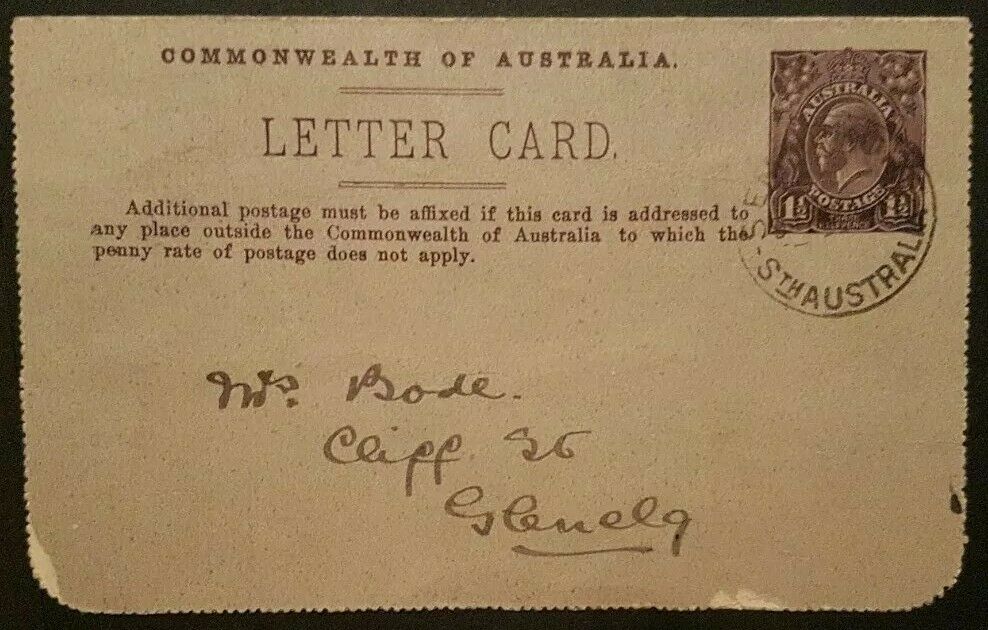 COMMONWEALTH OF AUSTRALIA.
AUSTRALIA
LETTER CARD.
POSTAGE
1½ 1½
Additional postage must be affixed if this card is addressed to
any place outside the Commonwealth of Australia to which the
penny rate of postage does not apply.
STH AUSTRAL
Mrs. Bode.
Cliff St
Glenelg